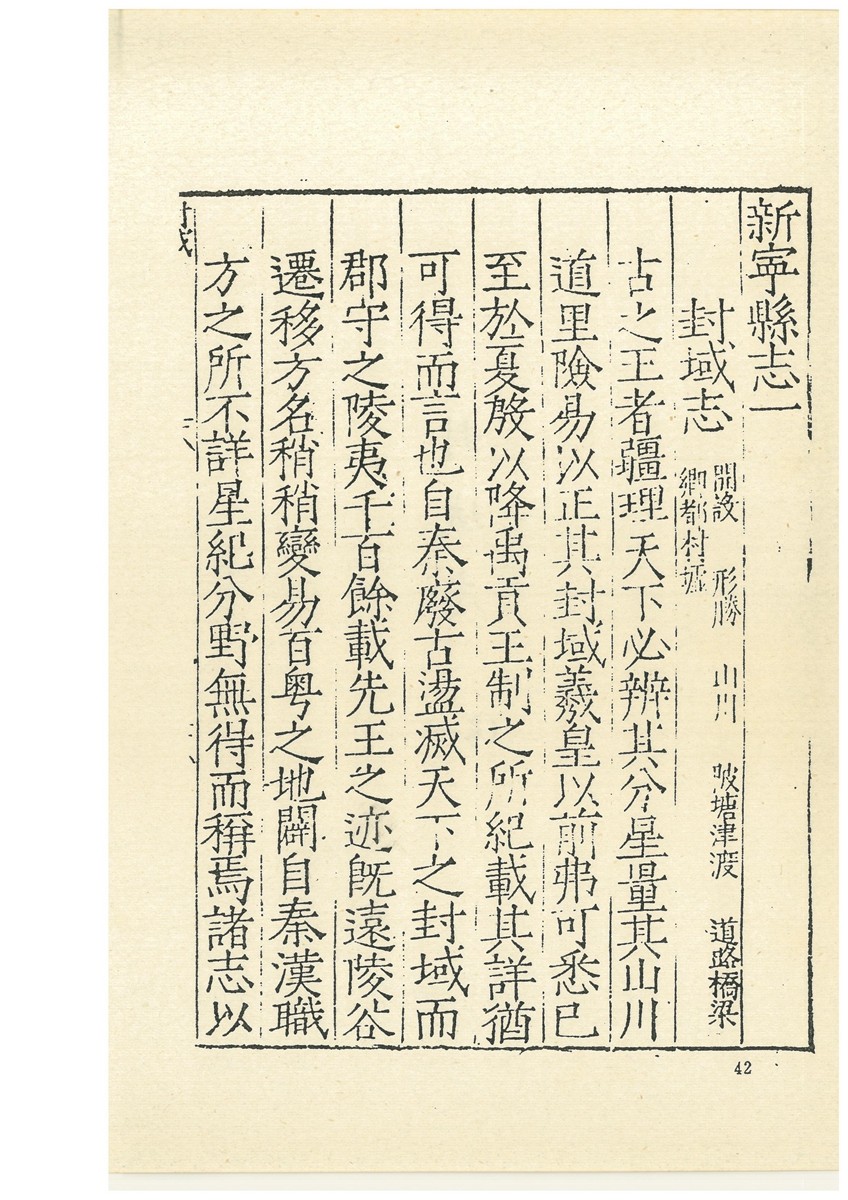 新寧縣志一
封域志 開設 形勝 山川 陂塘津渡 道路橋梁
鄉都村墟
古之王者疆理天下必辨其分星量其山川
道里險易以正其封域羲皇以前弗可悉已
至於夏殷以降禹貢王制之所紀載其詳猶
可得而言也自秦廢古盪滅天下之封域而
郡守之陵夷千百餘載先王之迹既遠陵谷
遷移方名稍稍變易百粤之地闢自秦漢職
方之所不詳星紀分野無得而稱焉諸志以
封域
42